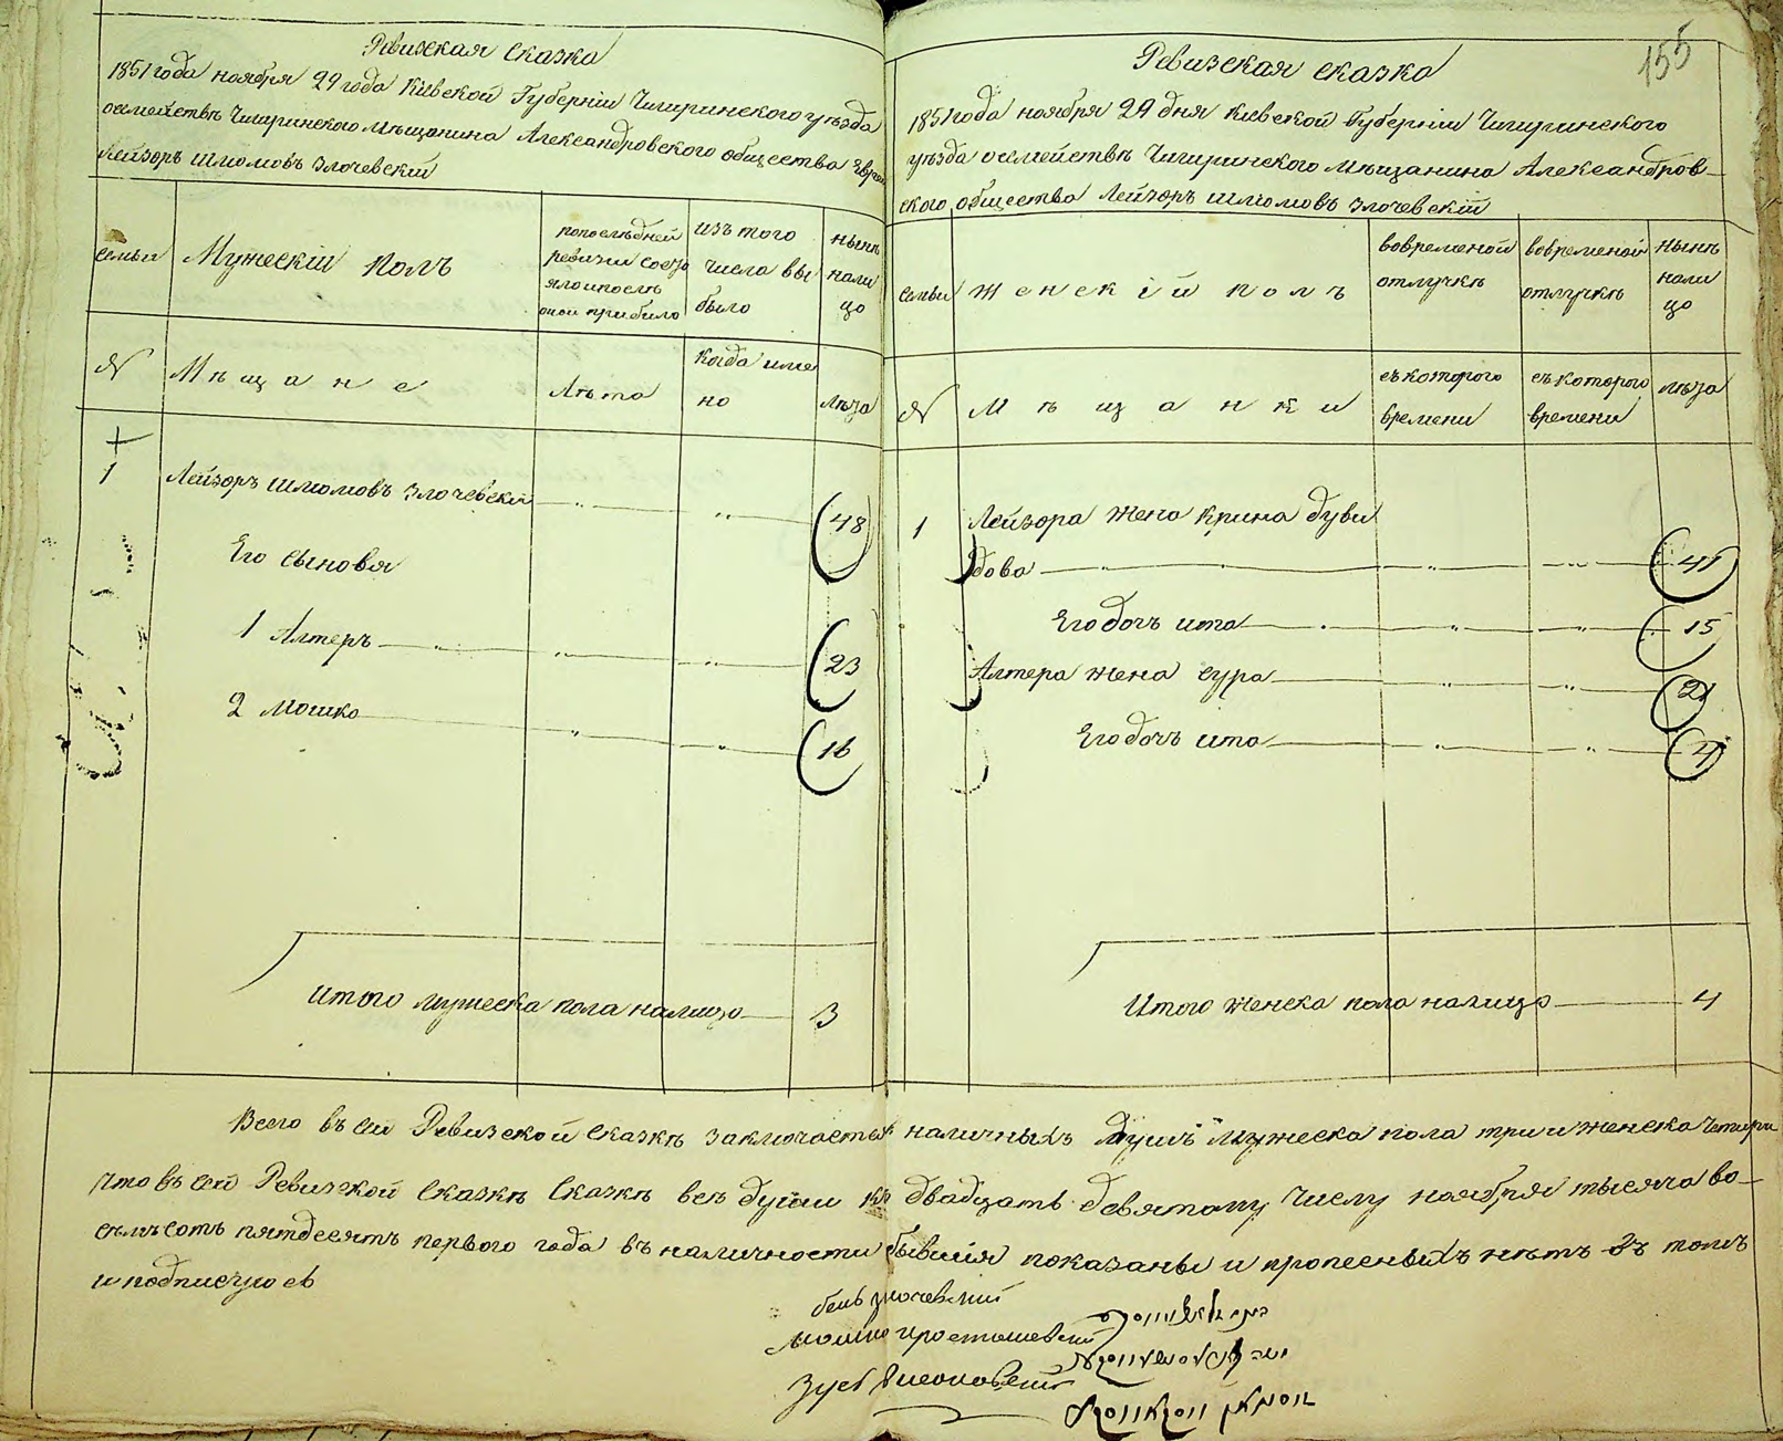 Ревизская сказка
1851 года ноября 29 года Киевской Губернии Чигиринского уѣзда
осемействѣ Чигиринского мѣщанина Александровского общества Евреи
Лейзоръ Шмомовъ Злочевскій
семьи
Мужескій полъ
попослѣдней ревизии состояло ипослѣ оной прибило
изъ того числа выбыло
нынѣ нали цо
№
Мѣщане
Лѣта
когда имено
лѣта
1 Лейзоръ Шмомовъ Злочевскій 48
Его сыновя
1 Алтеръ 23
2 Мошко 16
Итого мужеска пола налицо 3
155
Ревизская сказка
1851 года ноября 29 дня Киевской Губернии Чигиринского
уѣзда осемействѣ Чигиринского мѣщанина Александров-
ского общества Лейзоръ Шмомовъ Злочевскій
семьи
Женскій полъ
вовременой отлучкѣ
вовременой отлучкѣ
нынѣ нали цо
№
Мѣщанки
съкоторого времени
съкоторого времени
лѣта
1 Лейзора жена Крина Дуви
дова 41
Его дочъ Ита 15
Алтера жена Сура 21
Его дочъ Ита 4
Итого женска пола налицо 4
Всего въ сей Ревизской сказкѣ заключается наличныхъ душъ мужеска пола три и женска четыри
что въ сей Ревизской Сказкѣ Сказкѣ всѣ души къ двадцать девятому числу ноября тысяча во-
семъсотъ пятдесятъ первого года въ наличности бывшія показаны и пропесныхъ нѣтъ въ томъ
и подписуюсь
бень злочевский